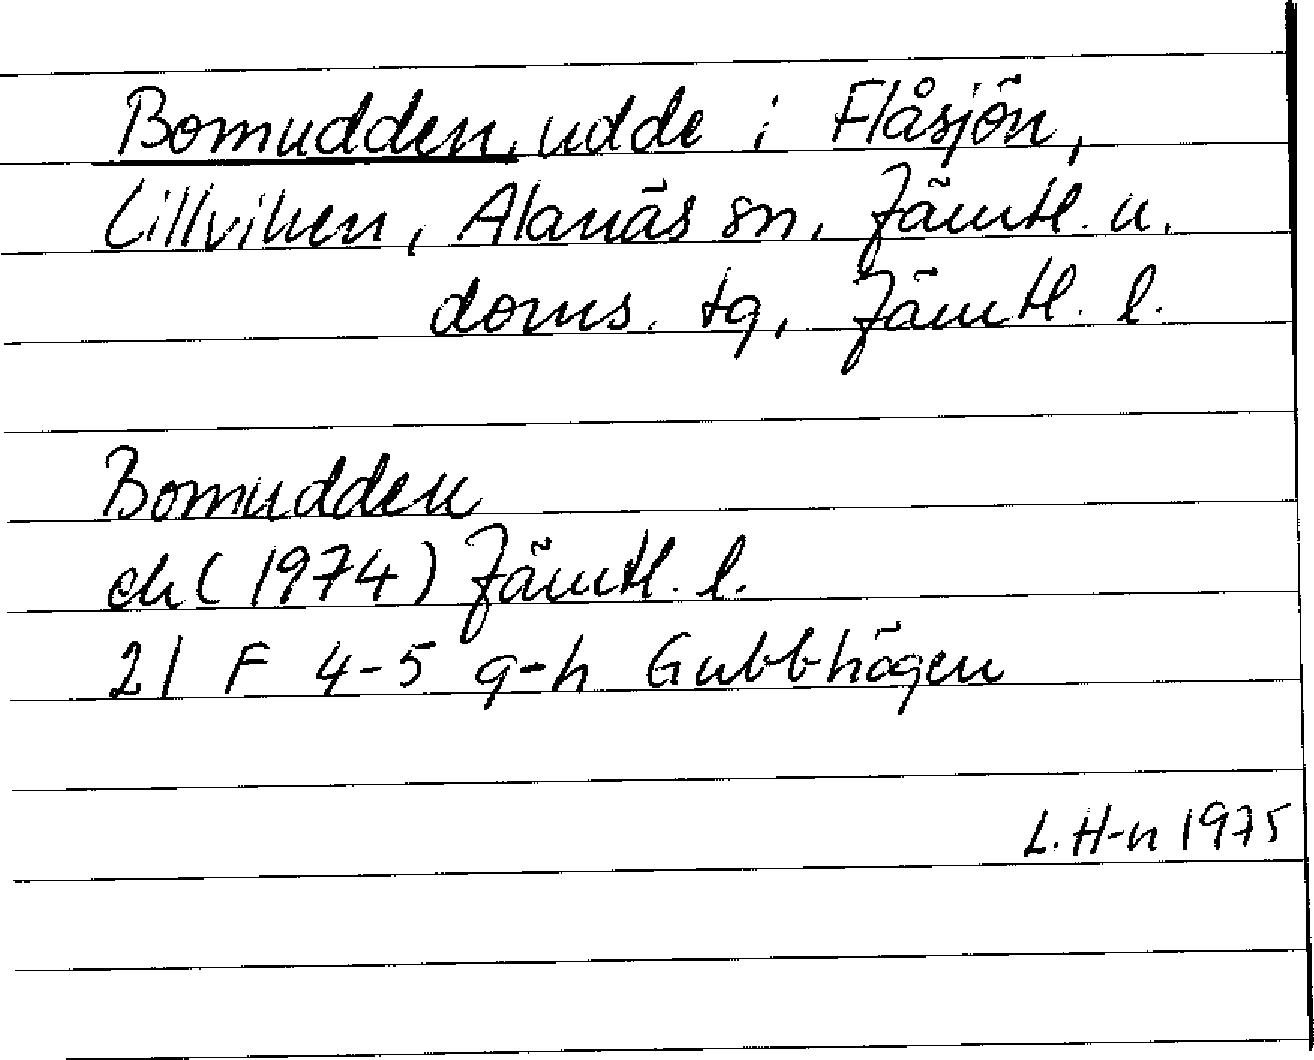 Bomudden, udde i Flåsjön,
Lillviken, Alanäs sn, Jämtl. n.
doms. tg, Jämtl. l.
Bomudden
ek (1974) Jämtl. l.
21 F 4-5 g-h Gubbhögen
L. H-n 1975